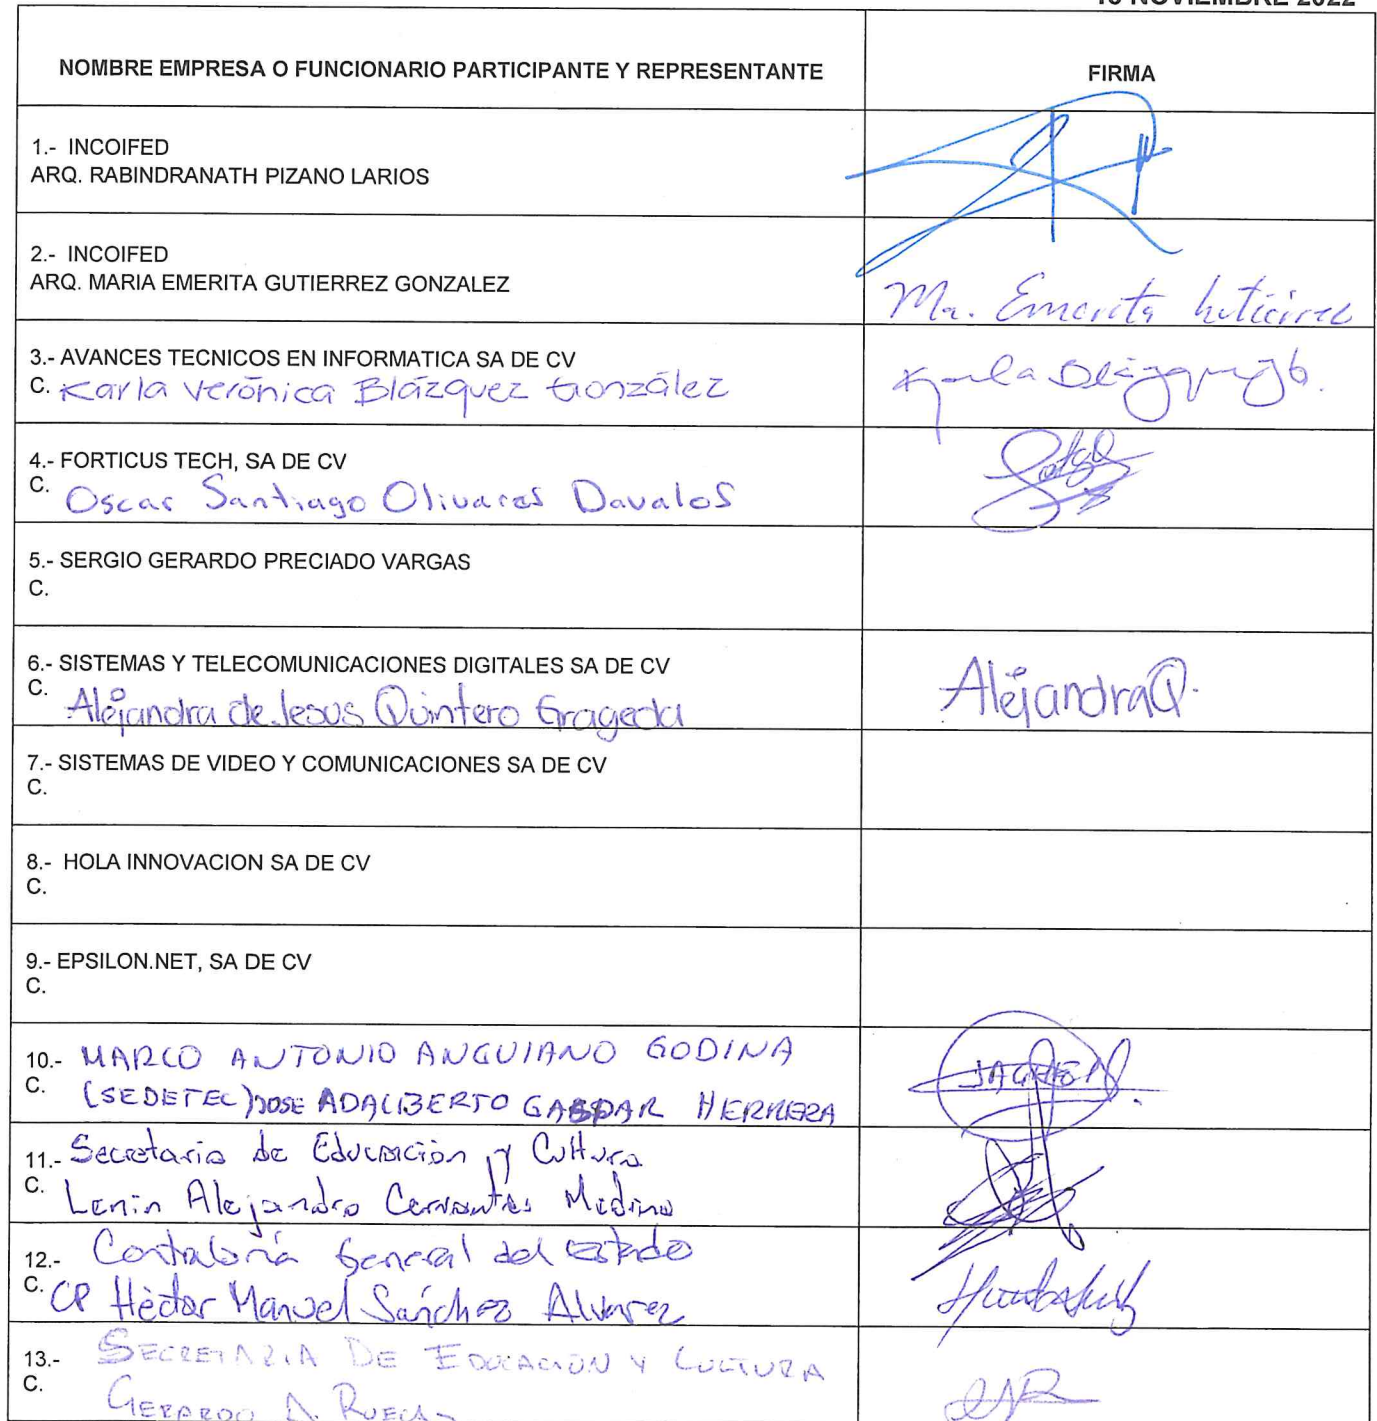 NOVIEMBRE 2022
NOMBRE EMPRESA O FUNCIONARIO PARTICIPANTE Y REPRESENTANTE
FIRMA
1.- INCOIFED
ARQ. RABINDRANATH PIZANO LARIOS
2.- INCOIFED
ARQ. MARIA EMERITA GUTIERREZ GONZALEZ
Ma. Emerita Gutiérrez
3.- AVANCES TECNICOS EN INFORMATICA SA DE CV
C. Karla Verónica Blázquez González
Karla Blázquez G.
4.- FORTICUS TECH, SA DE CV
C. Oscar Santiago Olivares Davalos
5.- SERGIO GERARDO PRECIADO VARGAS
C.
6.- SISTEMAS Y TELECOMUNICACIONES DIGITALES SA DE CV
C. Alejandra de Jesus Quintero Grageda
Alejandra Q.
7.- SISTEMAS DE VIDEO Y COMUNICACIONES SA DE CV
C.
8.- HOLA INNOVACION SA DE CV
C.
9.- EPSILON.NET, SA DE CV
C.
10.- MARCO ANTONIO ANGUIANO GODINA
C. (SEDETEC) JOSE ADALBERTO GASPAR HERRERA
11.- Secretaria de Educación y Cultura
C. Lenin Alejandro Cervantes Medina
12.- Contraloría General del Estado
C. CP Héctor Manuel Sánchez Alvarez
13.- SECRETARIA DE EDUCACION Y CULTURA
C. GERARDO A. RUEDA